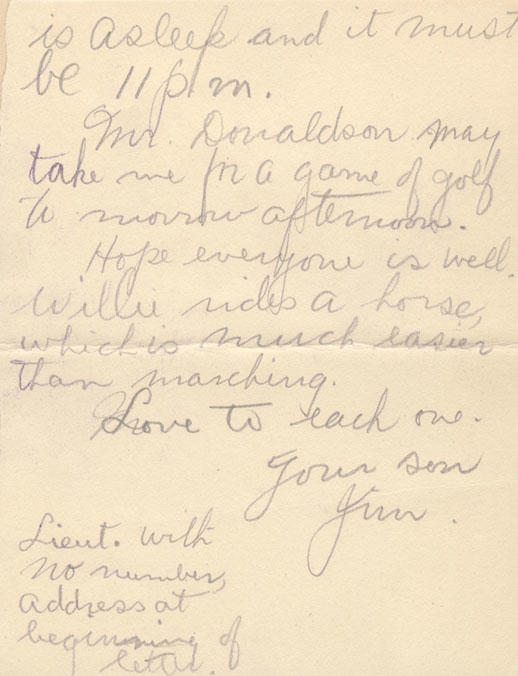 is asleep and it must
be 11 p.m.
Mr. Donaldson may
take me for a game of golf
to morrow afternoon.
Hope everyone is well.
Willie rides a horse,
which is much easier
than marching.
Love to each one.
Your son
Jim.
Lieut. with
no number,
address at
beginning of
letter.